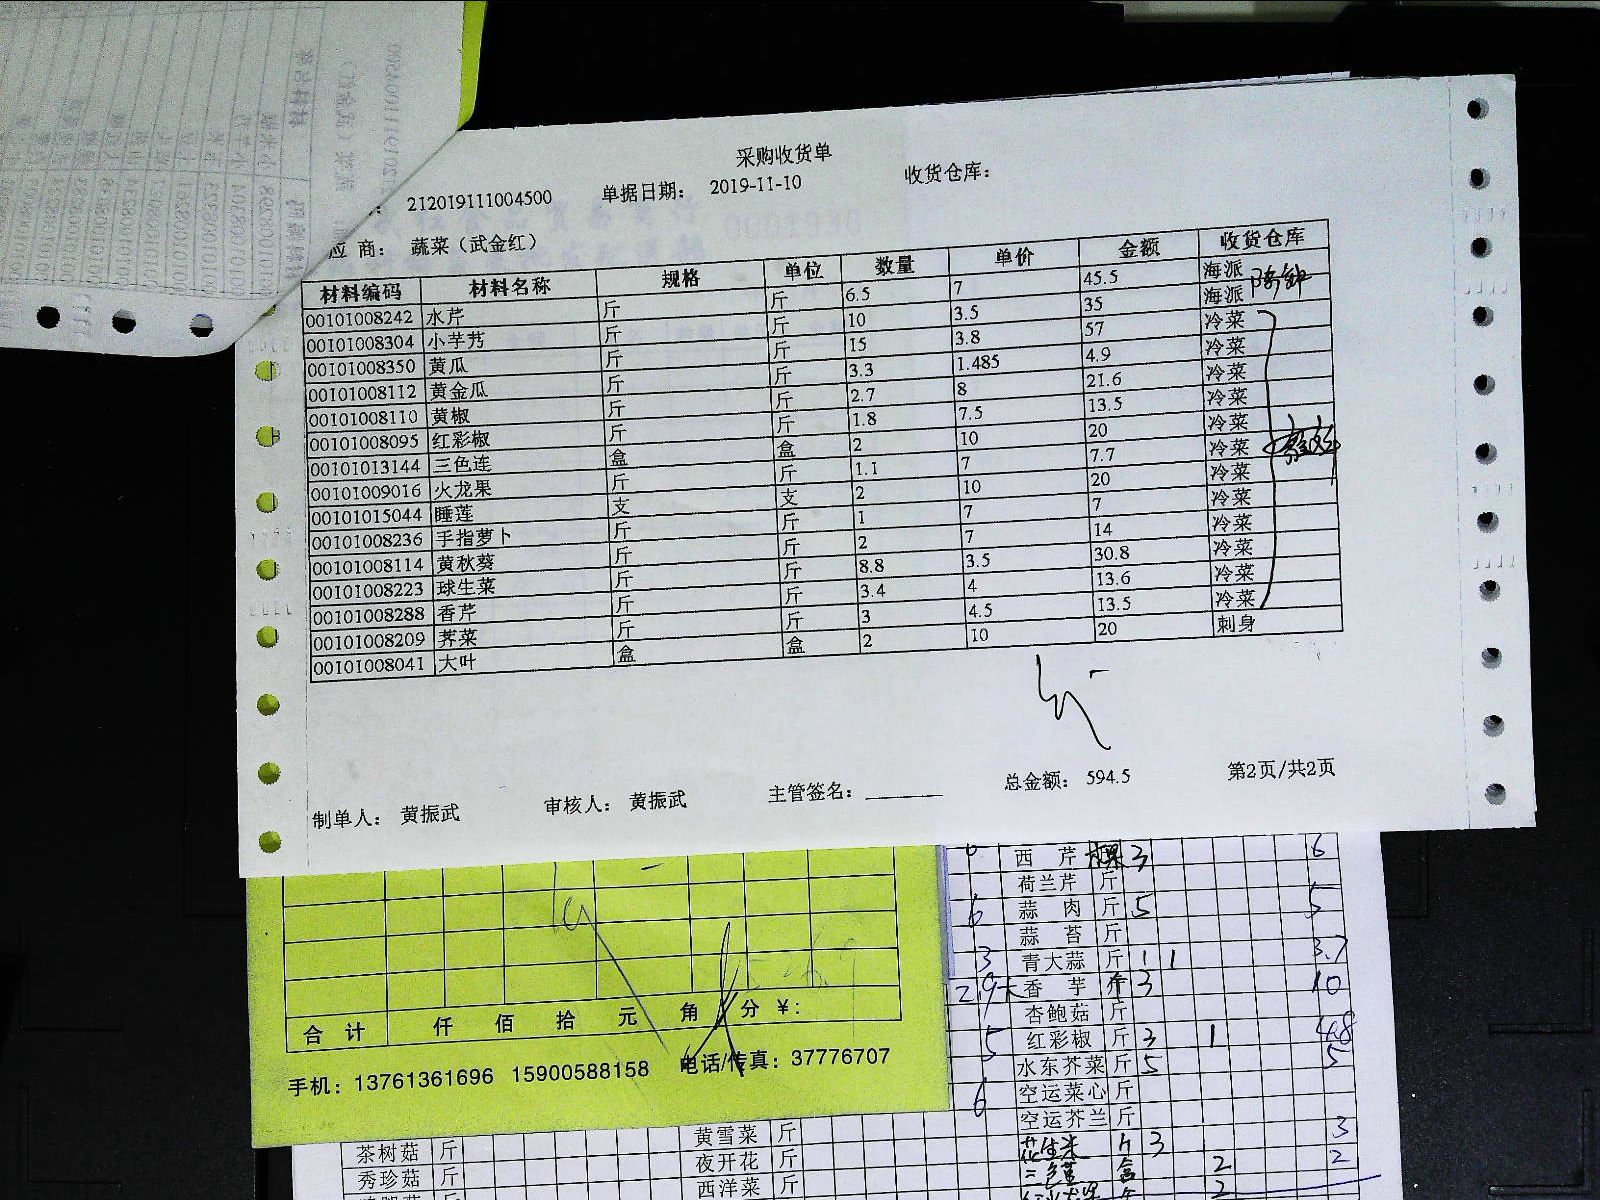 采购收货单
212019111004500 单据日期： 2019-11-10 收货仓库：
应 商： 蔬菜（武金红）
材料编码 材料名称 规格 单位 数量 单价 金额 收货仓库
00101008242 水芹 斤 斤 6.5 7 45.5 海派
00101008304 小芋艿 斤 斤 10 3.5 35 海派
00101008350 黄瓜 斤 斤 15 3.8 57 冷菜
00101008112 黄金瓜 斤 斤 3.3 1.485 4.9 冷菜
00101008110 黄椒 斤 斤 2.7 8 21.6 冷菜
00101008095 红彩椒 斤 斤 1.8 7.5 13.5 冷菜
00101013144 三色连 盒 盒 2 10 20 冷菜
00101009016 火龙果 斤 斤 1.1 7 7.7 冷菜
00101015044 睡莲 支 支 2 10 20 冷菜
00101008236 手指萝卜 斤 斤 1 7 7 冷菜
00101008114 黄秋葵 斤 斤 2 7 14 冷菜
00101008223 球生菜 斤 斤 8.8 3.5 30.8 冷菜
00101008288 香芹 斤 斤 3.4 4 13.6 冷菜
00101008209 荠菜 斤 斤 3 4.5 13.5 冷菜
00101008041 大叶 盒 盒 2 10 20 刺身
制单人： 黄振武 审核人： 黄振武 主管签名： 总金额： 594.5 第2页/共2页
合 计 仟 佰 拾 元 角 分 ¥：
手机：13761361696 15900588158 电话/传真：37776707
西 芹 3 6
荷兰芹 斤
6 蒜 肉 斤 5 5
蒜 苔 斤
3 青大蒜 斤 1 1 3.7
2.9 大香 芋 斤 3 10
杏鲍菇 斤
5 红彩椒 斤 3 1 4.8
水东芥菜 斤 5 5
6 空运菜心 斤
空运芥兰 斤
花生米 3 3
盒 2 2
茶树菇 斤 黄雪菜 斤
秀珍菇 斤 夜开花 斤
西洋菜 斤